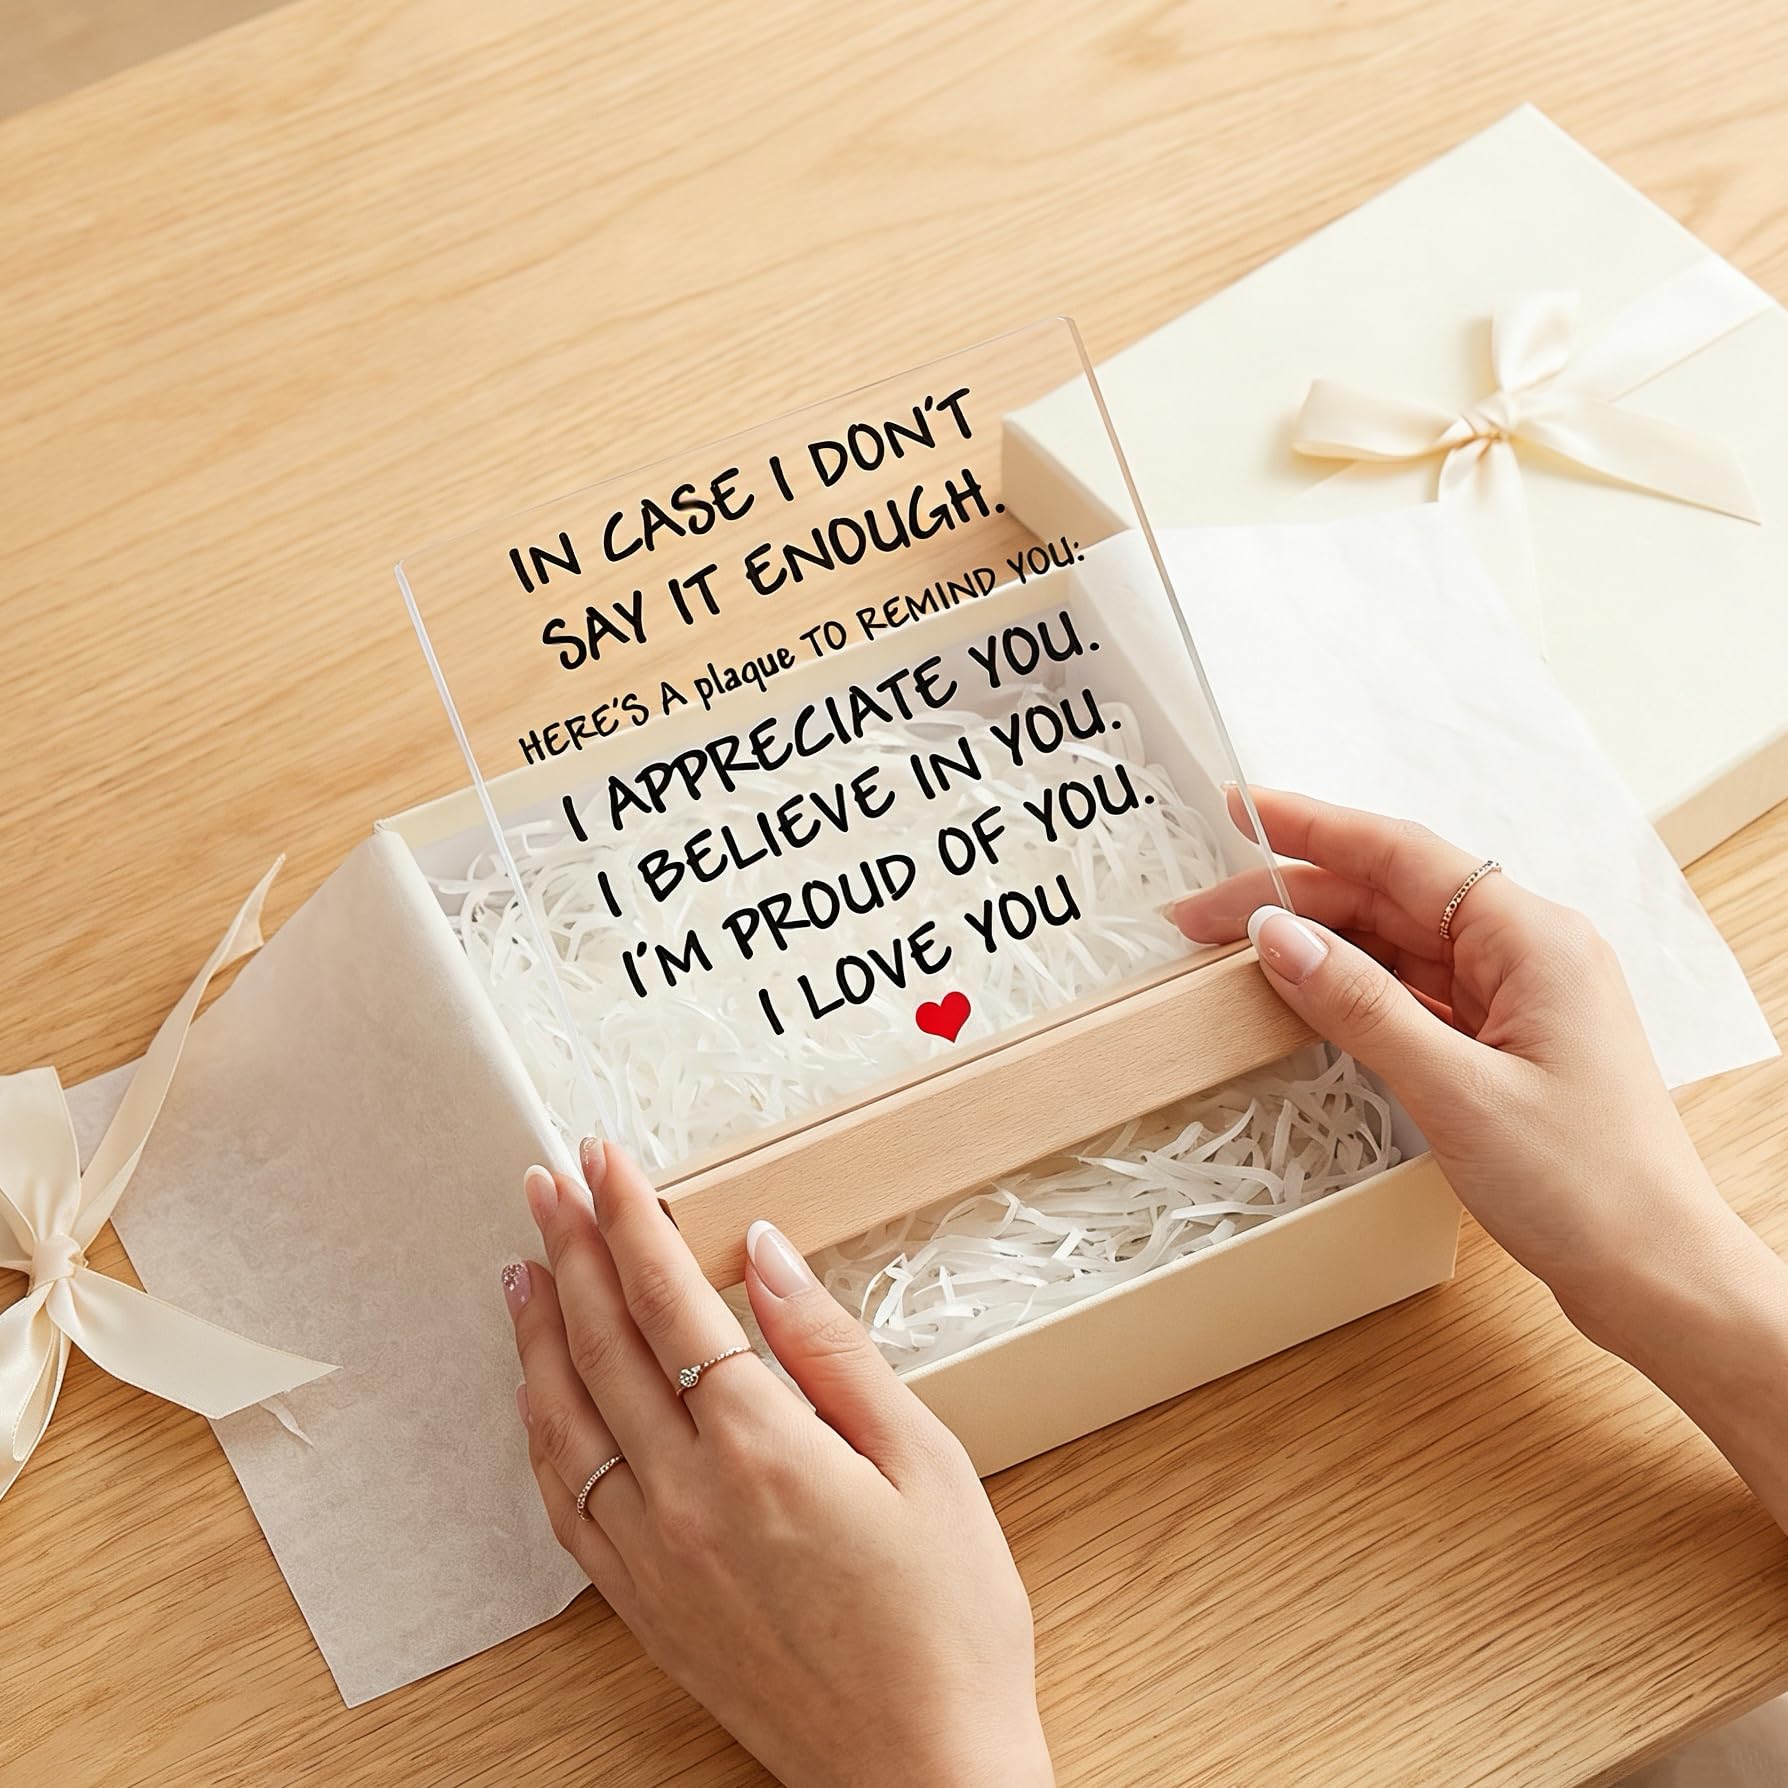 IN CASE I DON'T
SAY IT ENOUGH.
HERE'S A plaque TO REMIND YOU:
I APPRECIATE YOU.
I BELIEVE IN YOU.
I'M PROUD OF YOU.
I LOVE YOU